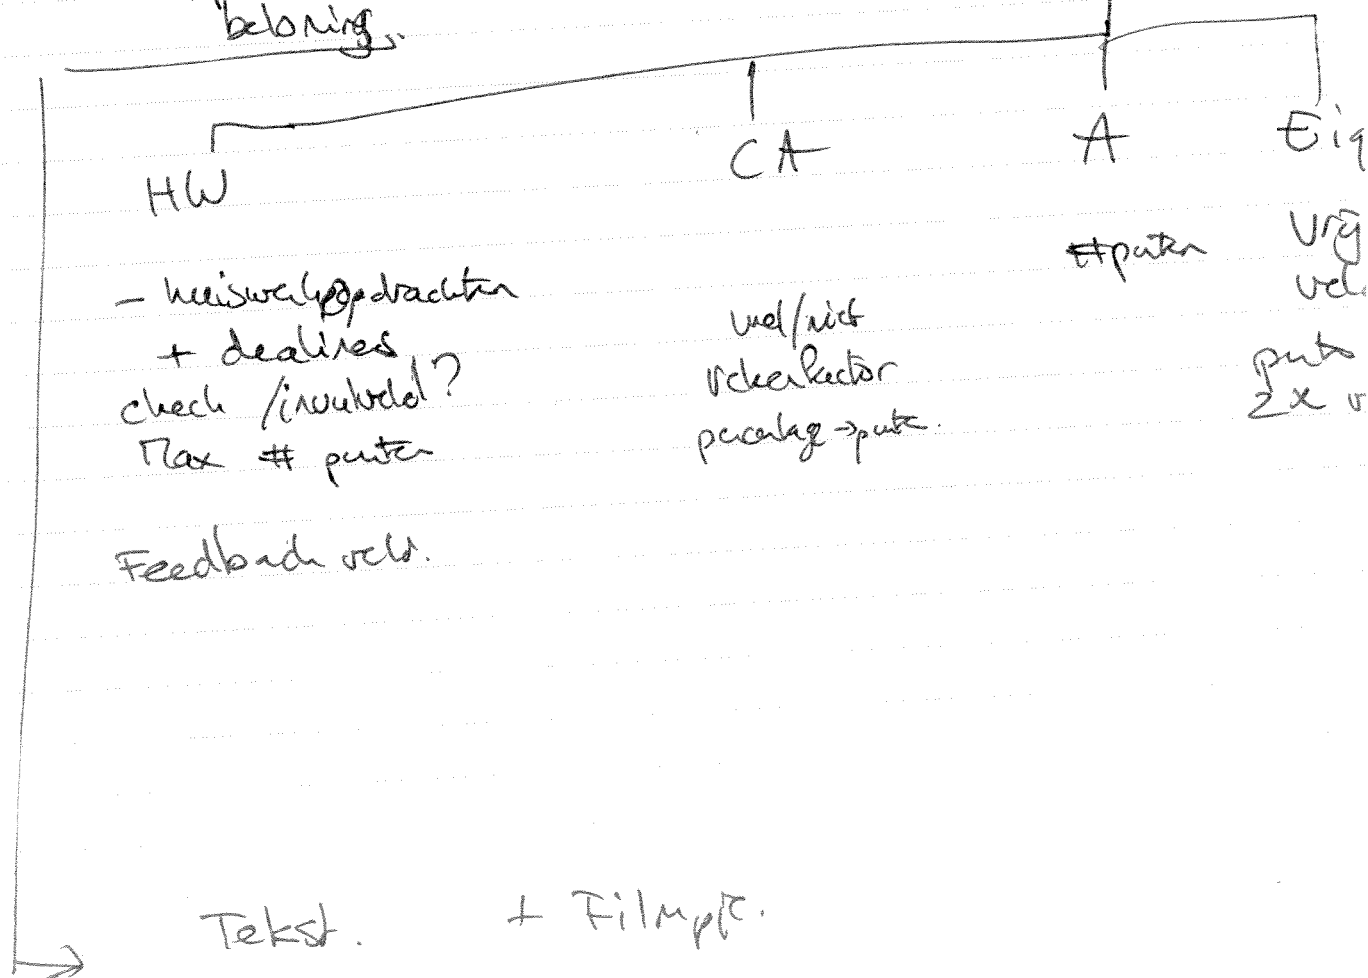 beloning.
HW
CA
A
Eig
- huiswerkopdrachten
+ dealines
check / invulveld?
Max # punten
Feedback veld.
wel/niet
rekenfactor
percentage → punten.
# punten
Vrij
veld
punten
2x v
Tekst. + Filmpje.